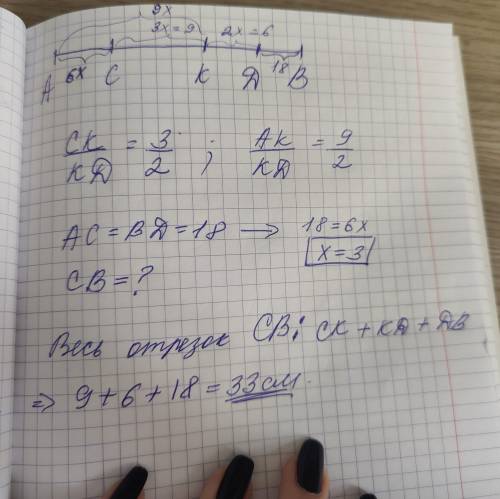 9x
3x=9 2x=6
6x 18
A C K Д B
CK/KД = 3/2 ; AK/KД = 9/2
AC = BД = 18 → 18=6x
x=3
CB = ?
Весь отрезок CB: CK + KД + ДB
⇒ 9 + 6 + 18 = 33см.